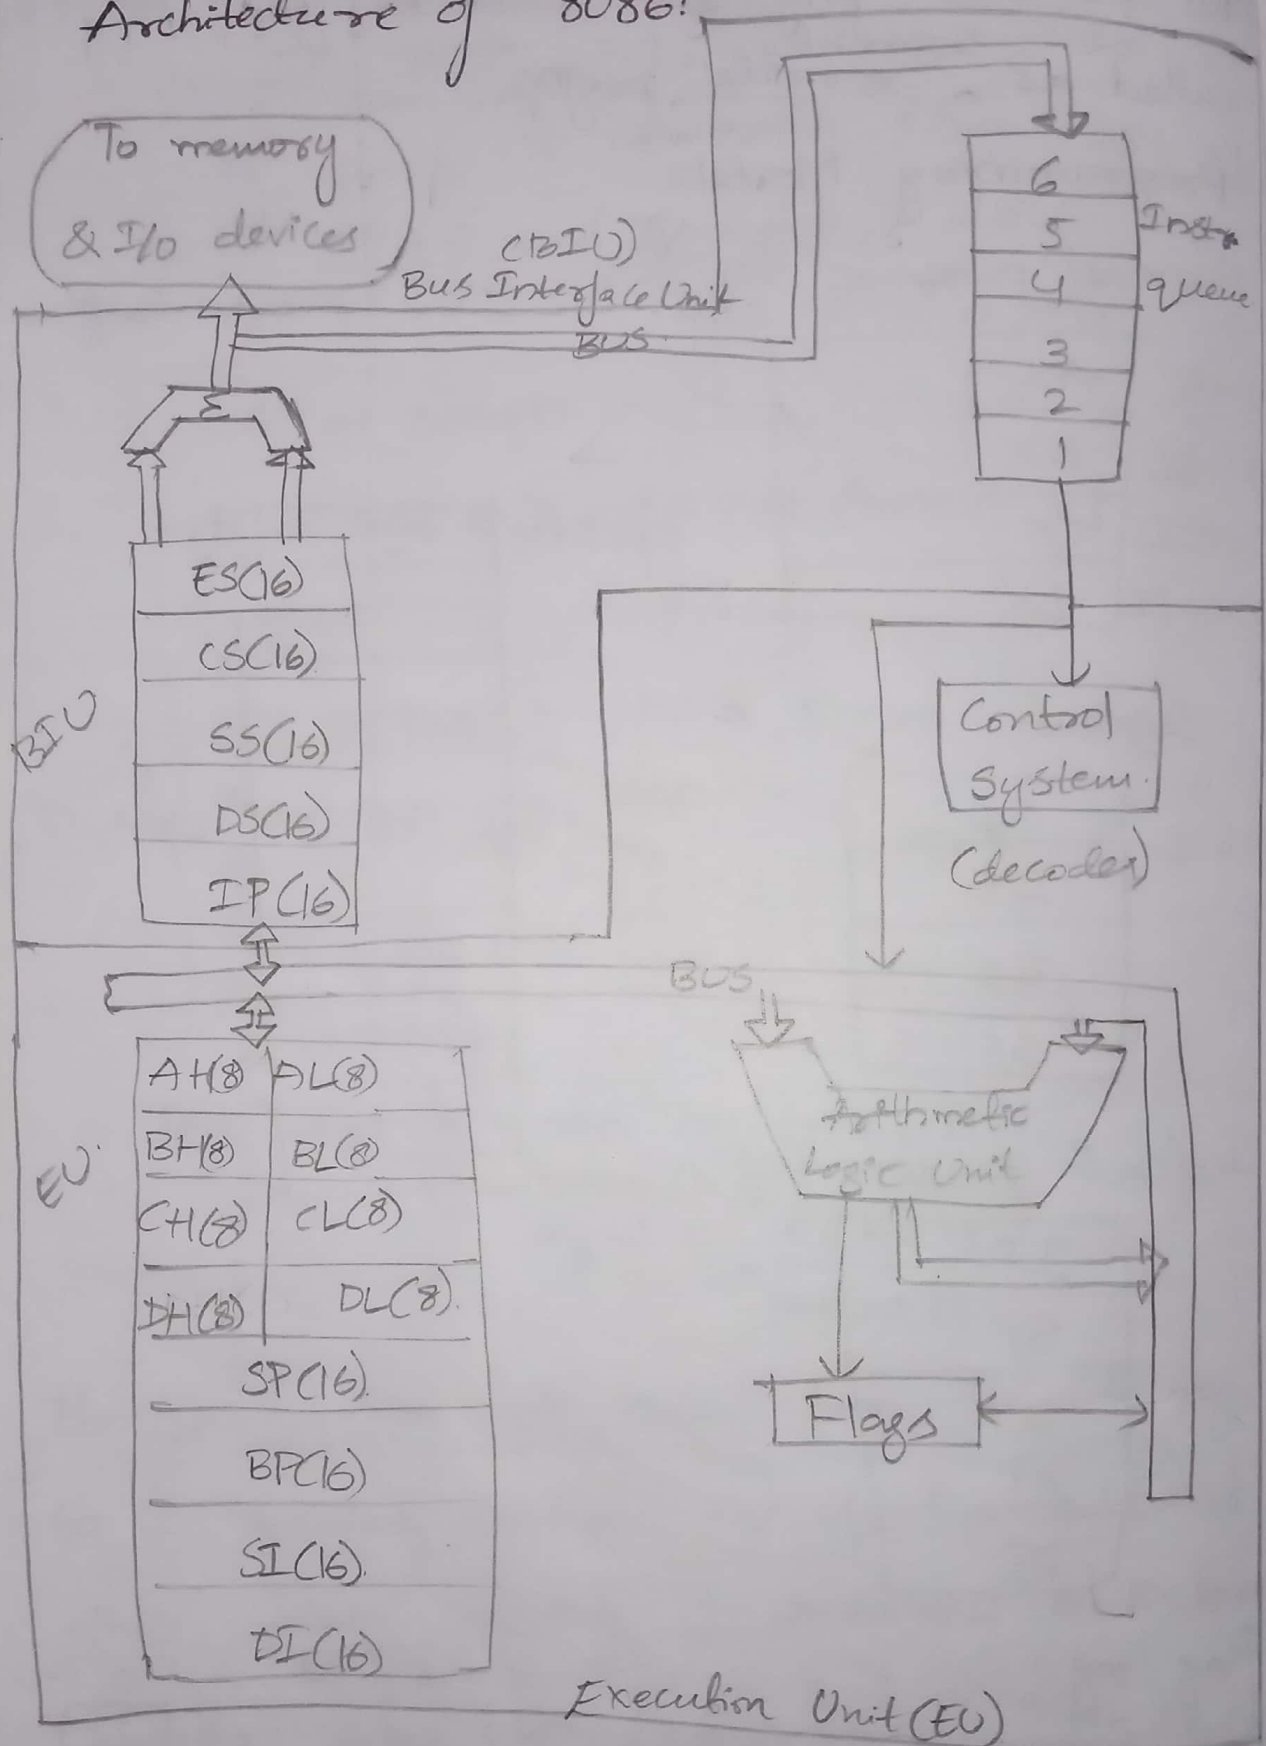 Architecture of 8086:
To memory
& I/o devices
(BIU)
Bus Interface Unit
BUS
6
5
4
3
2
1
Instr
queue
Σ
ES(16)
CS(16)
SS(16)
DS(16)
IP(16)
BIU
Control
System.
(decoder)
BUS
AH(8) AL(8)
BH(8) BL(8)
CH(8) CL(8)
DH(8) DL(8).
SP(16).
BP(16)
SI(16).
DI(16)
EU.
Arithmetic
Logic Unit
Flags
Execution Unit (EU)